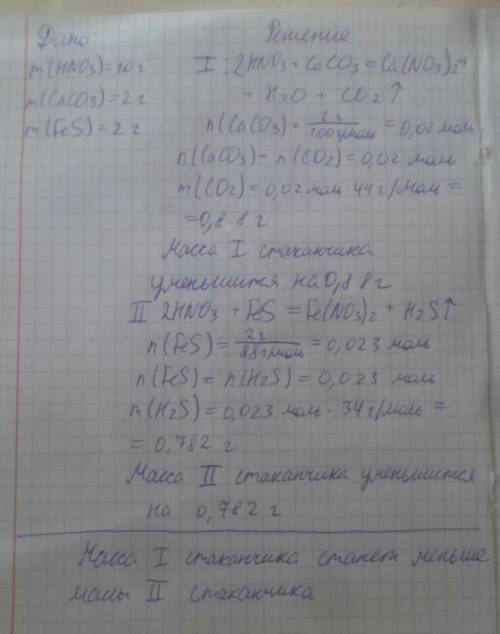 Дано: Решение
m(HNO3)=10 г I: 2HNO3 + CaCO3 = Ca(NO3)2 +
m(CaCO3)=2 г + H2O + CO2↑
m(FeS)=2 г n(CaCO3) = 2 г / 100 г/моль = 0,02 моль
n(CaCO3) = n(CO2) = 0,02 моль
m(CO2) = 0,02 моль · 44 г/моль =
=0,88 г
Масса I стаканчика
уменьшится на 0,88 г
II 2HNO3 + FeS = Fe(NO3)2 + H2S↑
n(FeS) = 2 г / 88 г/моль = 0,023 моль
n(FeS) = n(H2S) = 0,023 моль
m(H2S) = 0,023 моль · 34 г/моль =
= 0,782 г
Масса II стаканчика уменьшится
на 0,782 г
Масса I стаканчика станет меньше
массы II стаканчика